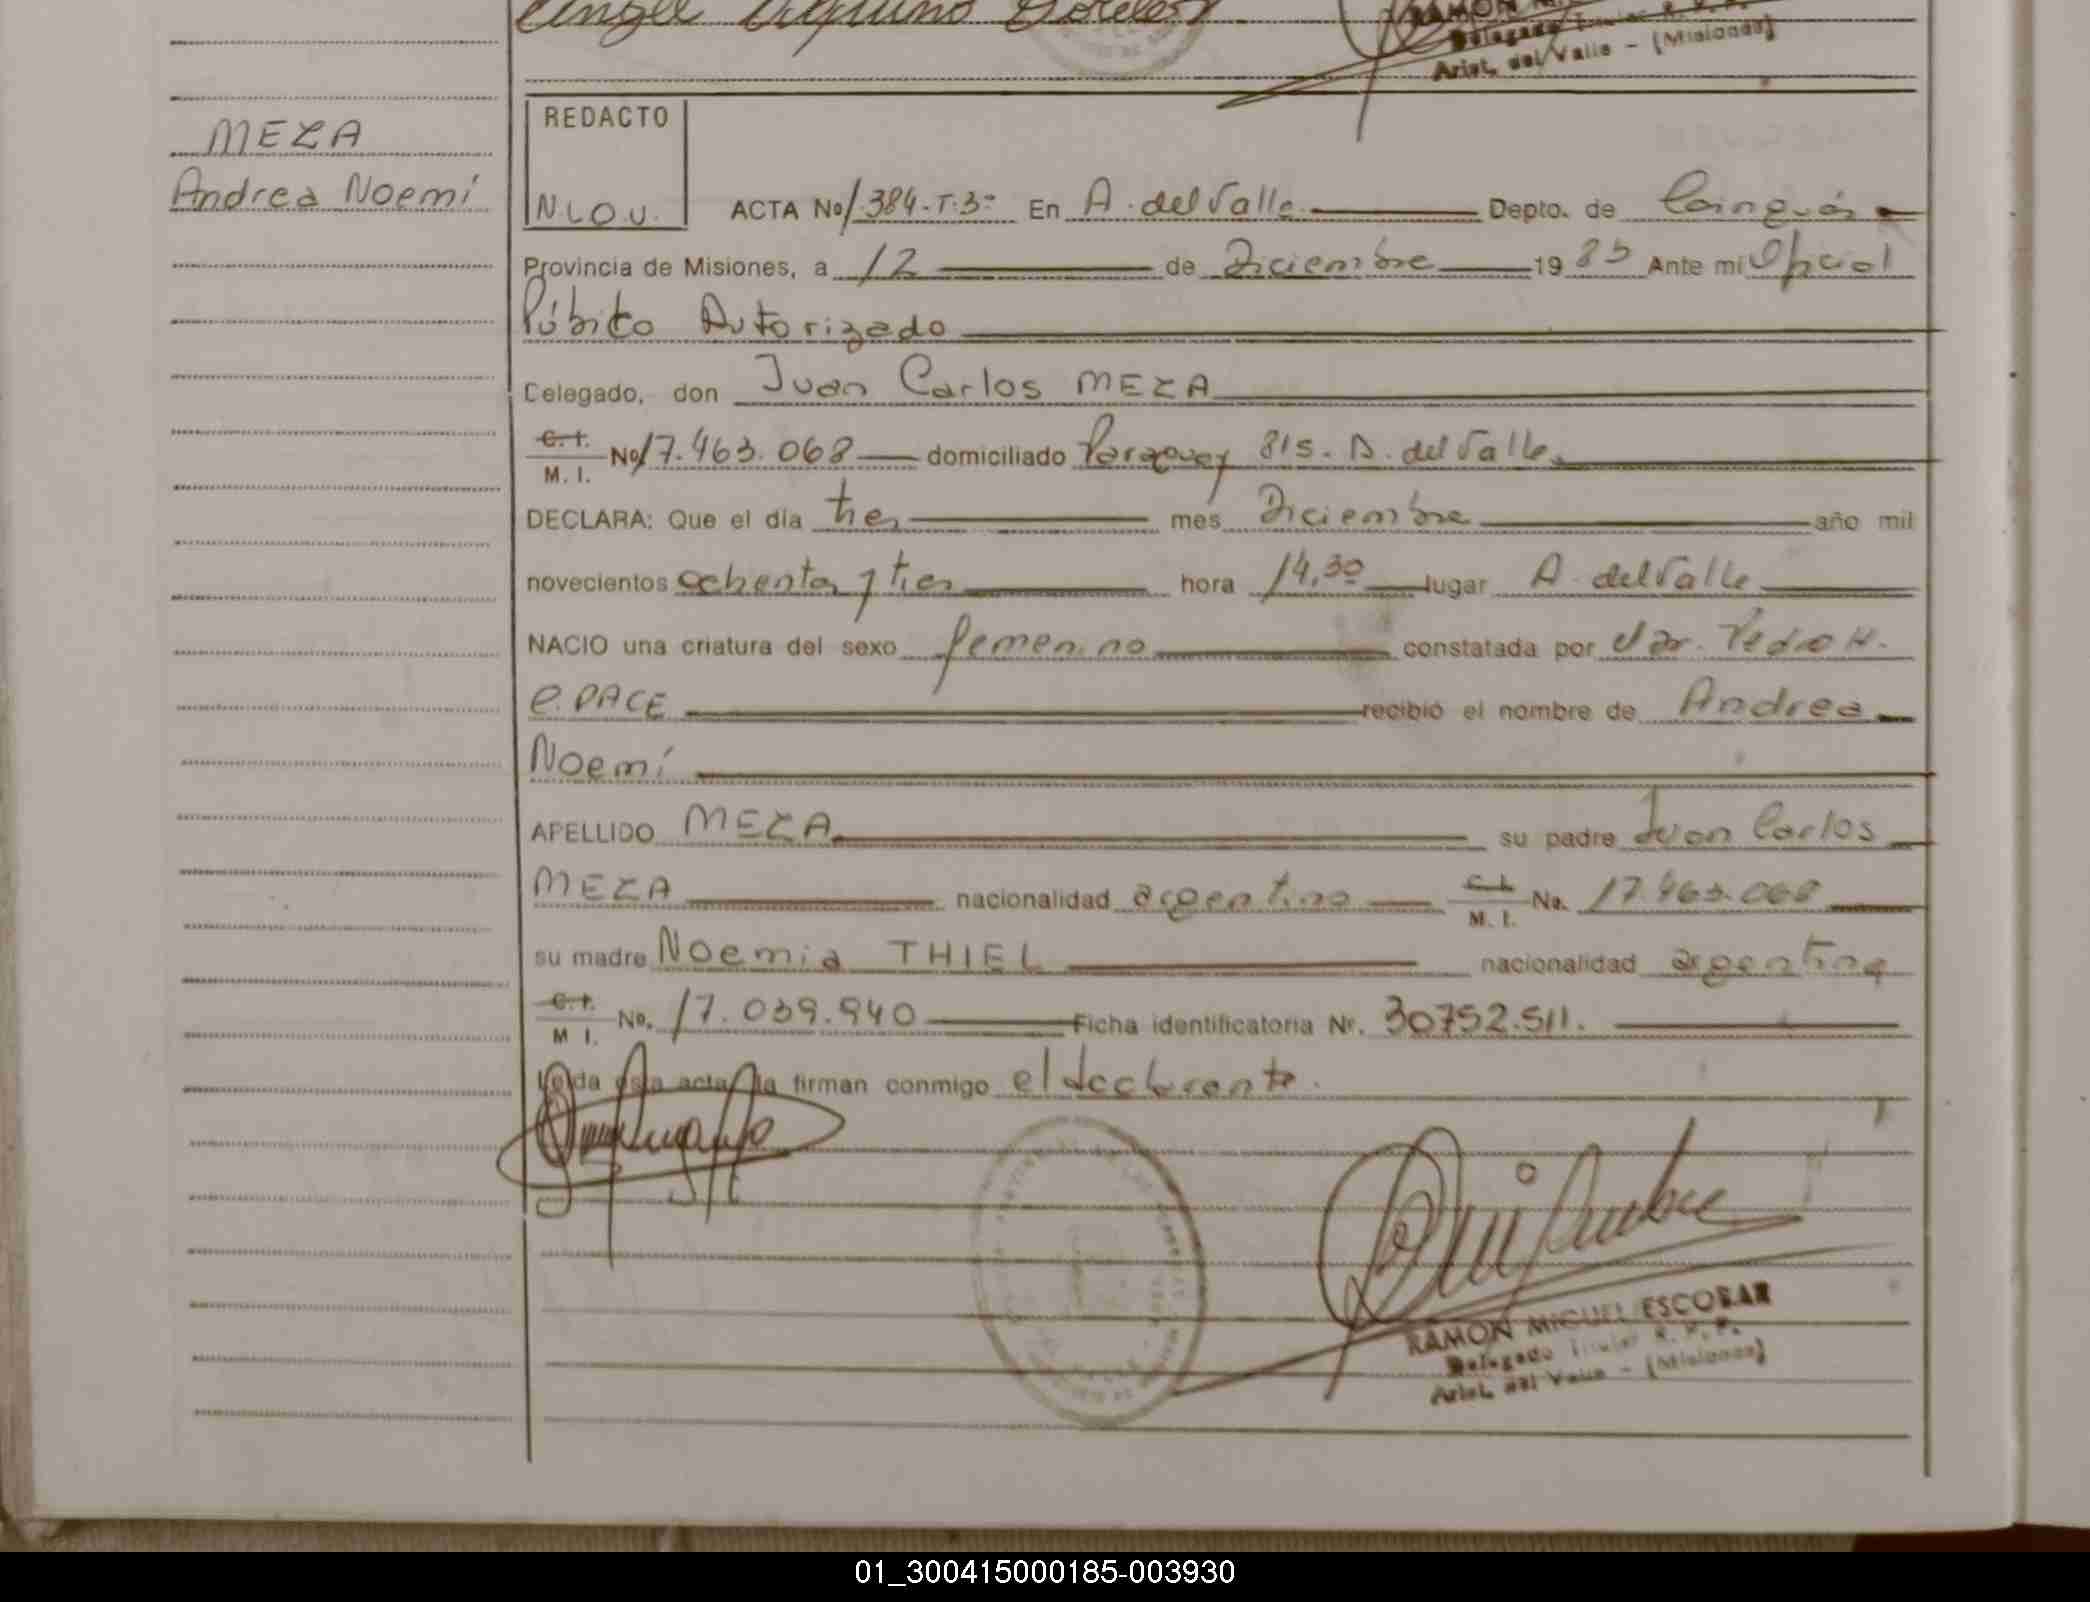 Angel Aquino
Delegado Titular R. P. P.
Arist. del Valle - (Misiones)
MEZA
Andrea Noemí
REDACTO
N.L.O.U.
ACTA No 1.384-T.3º En A. del Valle Depto. de Cainguás
Provincia de Misiones, a 12 de Diciembre 1983 Ante mi Oficial
Púbico Autorizado
Delegado, don Juan Carlos MEZA
C. I. M. I. No 17.463.068 domiciliado Paraguay 815. A. del Valle
DECLARA: Que el día tres mes Diciembre año mil
novecientos ochenta y tres hora 14,30 lugar A. del Valle
NACIO una criatura del sexo femenino constatada por el Dr. Pedro H.
e. PACE recibió el nombre de Andrea
Noemí
APELLIDO MEZA su padre Juan Carlos
MEZA nacionalidad argentino C. I. M. I. No. 17.463.068
su madre Noemia THIEL nacionalidad argentina
C. I. M. I. No. 17.039.940 Ficha identificatoria Nr. 30752.511.
Leída esta acta la firman conmigo el declarante.
RAMON MIGUEL ESCOBAR
Delegado Titular R. P. P.
Arist. del Valle - (Misiones)
01_300415000185-003930